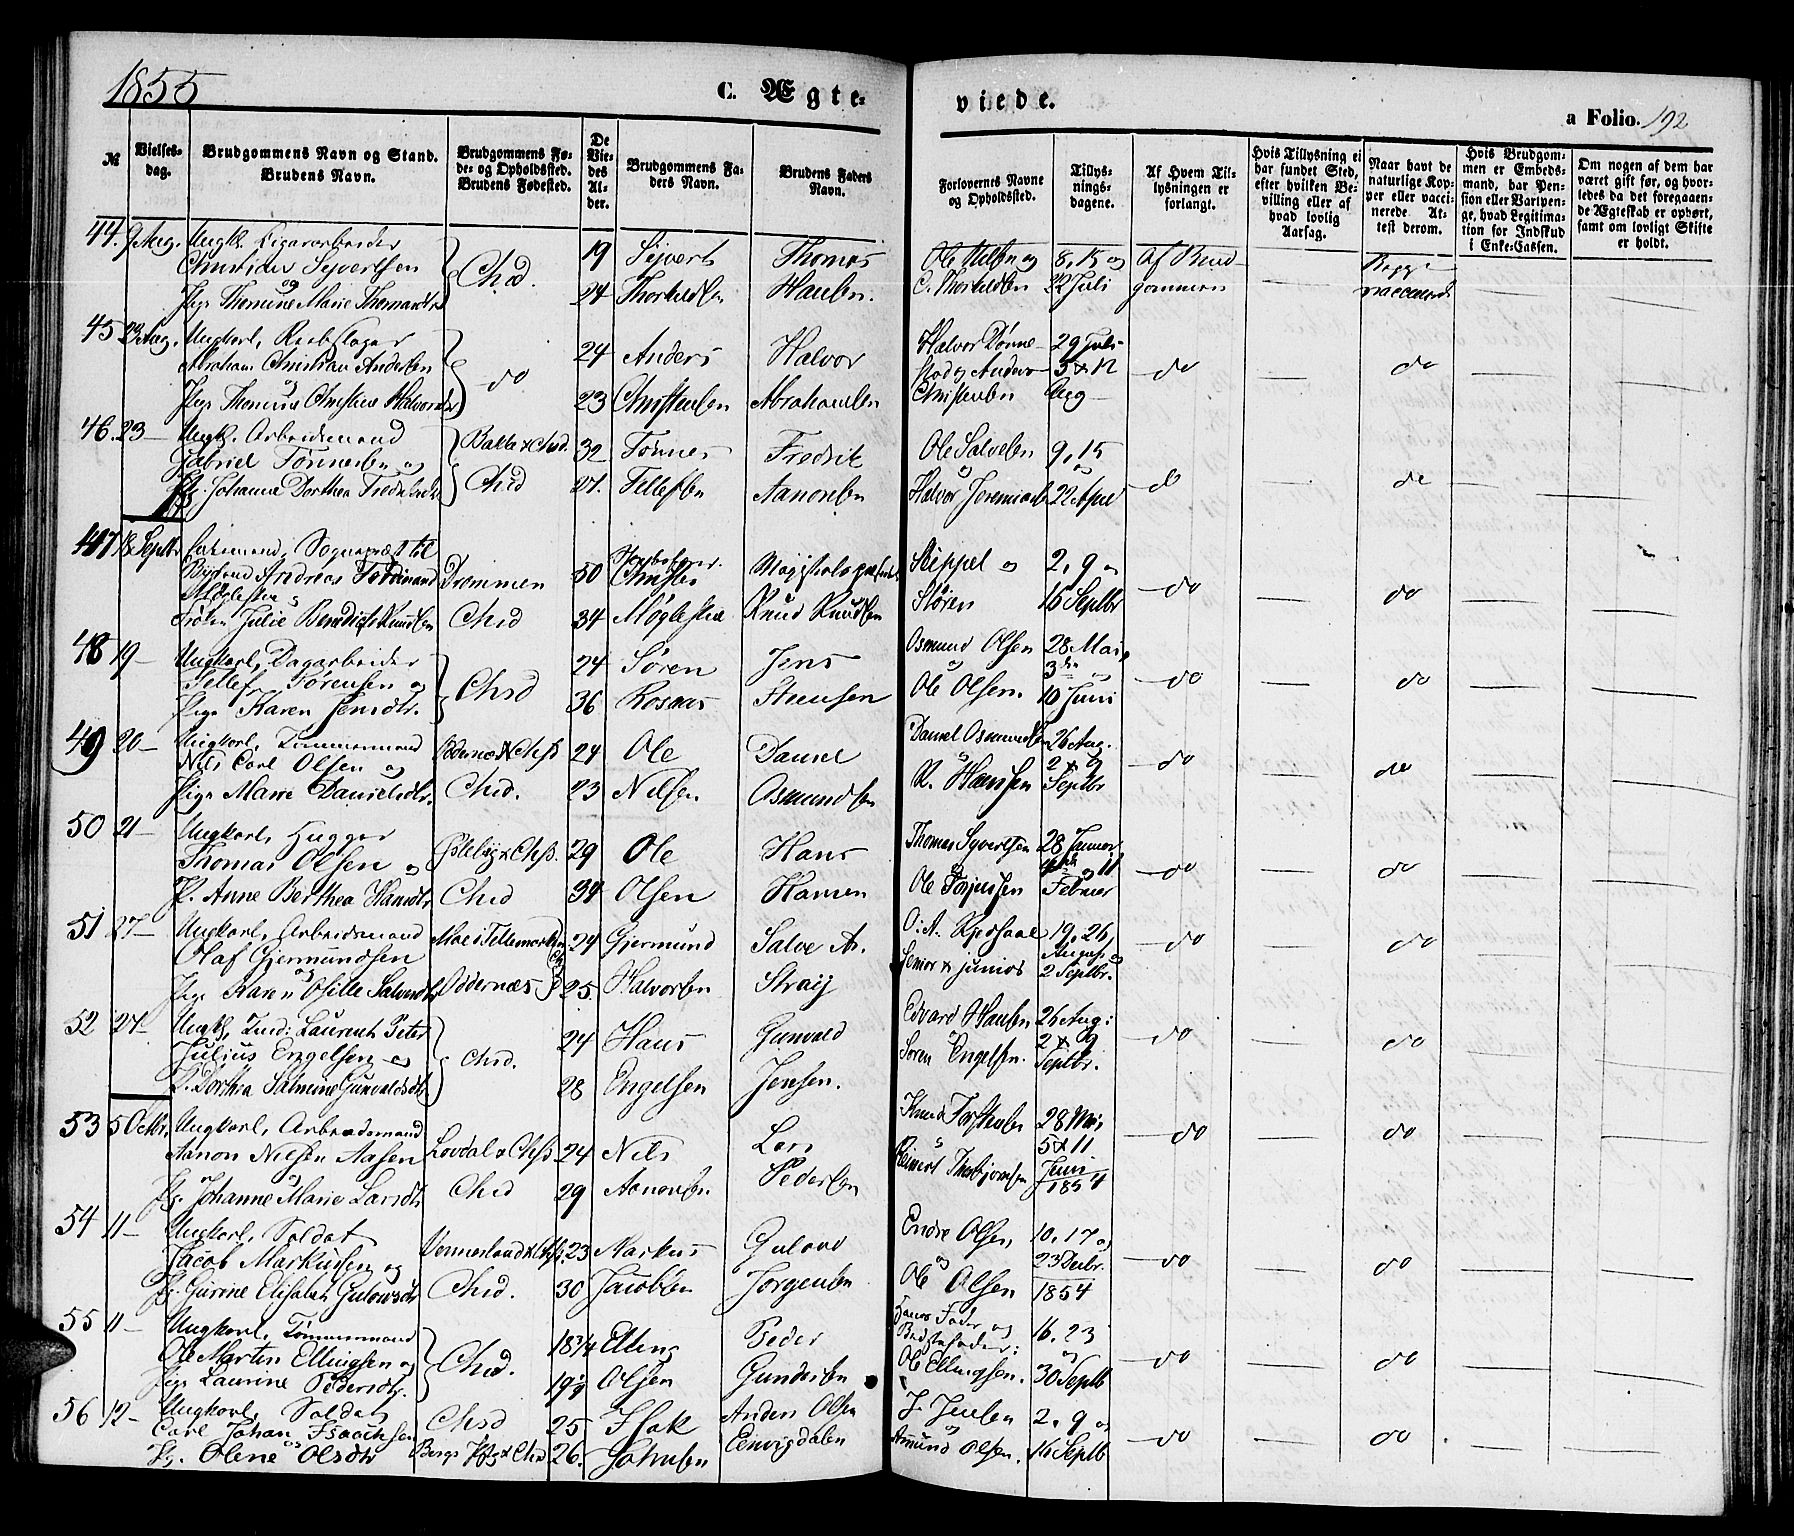 1855
C. Ægte-
viede.
a Folio. 192
№
Vielses-
dag.
Brudgommens Navn og Stand.
Brudens Navn.
Brudgommens Fø-
de- og Opholdssted.
Brudens Fødested.
De
Vie-
des
Al-
der.
Brudgommens Fa-
ders Navn.
Brudens Faders
Navn.
Forlovernes Navne
og Opholdssted.
Tillys-
nings-
dagene.
Af Hvem Til-
lysningen er
forlangt.
Hvis Tillysning ei
har fundet Sted,
efter hvilken Be-
villing eller af
hvad lovlig
Aarsag.
Naar havt de
naturlige Kop-
per eller vacci-
nerede At-
test derom.
Hvis Brudgom-
men er Embeds-
mand, har Pen-
sion eller Vartpen-
ge, hvad Legitima-
tion for Indskud
i Enke-Cassen.
Om nogen af dem har
været gift før, og hvor-
ledes da det foregaaen-
de Ægteskab er ophørt,
samt om lovligt Skifte
er holdt.
44. 9 Aug. Ungk. Cigararbeider 19 Sejvert Thomas Ole Nilsen og 8, 15 og Af Brud- Begge
Christian Sejvertsen Chsd.
og
Pige Thomine Marie Thomasdtr 24 Thorkildsen Hansen. C. Thorkildsen 22 Juli gommen vaccinerede
45 23 Aug. Ungkarl, Reebslager 24 Anders Halvor Halvor Dønne- 29 Juli
Abraham Christian Andersen do stad og Anders 5 & 12 do do
og
Pige Thomine Christine Halvorsdtr 23 Christensen Abrahamsen Christensen Aug
46. 23 Ungk. Arbeidsmand Bakke & Chsd. 32 Tønnes Fredrik Ole Salvesen 9, 15
Gabriel Tønnesen og og og
Pg. Johanne Dorthea Fredriksdtr Chsd 27. Tellefsen Aanonsen Halvor Jeremiasen 22 April do do
47 18 Septbr Enkemand, Sognepræst til
Andreas Ferdinand Drammen 50 Christen Skippel og 2, 9 og
og
Frøken Julie Benedicte Knudsen Chsd 34 Møglestue Knud Knudsen Støren 16 Septbr do do
48 19 Ungkarl, Dagarbeider 24 Søren Jens Osmund Olsen 28 Mai,
Tellef Sørensen og Chsd og 3die og
Pige Karen Jensdtr. 36 Rosnæs Steensen Ole Olsen. 10 Juni do do
49 20 Ungkarl, Tømmermand Oddernæs & Chsd 24 Ole Daniel Daniel Osmundsen 26 Aug.
Nils Carl Olsen og og 2 & 9
Pige Marie Danielsdtr. Chsd. 23 Nilsen Osmundsen R. Hanssen Septbr do do
50 21 Ungkarl, Hugger 29 Ole Hans Thomas Syvertsen 28 Januar
Thomas Olsen og & Chsd. og 11
P. Anne Berthea Hansdtr Chsd 34 Olsen Hansen Ole Torjussen Februar do do
51 27 Ungkarl, Arbeidsmand Moe i Tellemarken 24 Gjermund Salve A. O. A. 19. 26
Olaf Gjermundsen August og
og
Pige Karen Osille Salvesdtr Oddernæs 25. Halvorsen Straij Senior & junior 2 Septbr. do do
52 27 Ungk, Laurents Peter 24 Hans Gunvald Edvard Hansen 26 Aug:
Julius Engelsen og Chsd. og 2 & 9
P. Dorthea Salmine Gunvaldsdtr 28 Engelsen Jensen. Søren Engelsen. Septbr. do do
53 5 Octbr. Ungkarl, Arbeidsmand 24 Nils Lars Knud 28 Mai,
Aanon Nilsen Aasen Lovdal & Chsd 5 & 11
og Juni
Pg. Johanne Marie Larsdtr Chsd 29 Aanonsen Pedersen Reinert Thorbjørnsen 1854 do do
54 11 Ungkarl, Soldat 23 Markus Gulow Endre Olsen 10. 17 og
Jacob Markussen og Vennesland & Chsd. og 23 Decbr.
Pg. Gurine Elisabeth Gulowsdtr Chsd. 30 Jacobsen Jørgensen Ole Olsen 1854 do do
55 11 Ungkarl, Tømmermand 18 3/4 Elling Peder Fader og 16. 23
Ole Martin Ellingsen og Chsd. Bedstefader: og
Pige Laurine Pedersdtr. 19 Olsen Gundersen Ole Ellingsen. 30 Septb do do
56 12 Ungkarl, Soldat Chsd 25 Isak Anders Olsen J. Jensen 2. 9 og
Carl Johan Isachsen og
og
Pg. Olene Olsdtr & Chsd 26. Johnsen Amund Olsen. 16 Septb do do